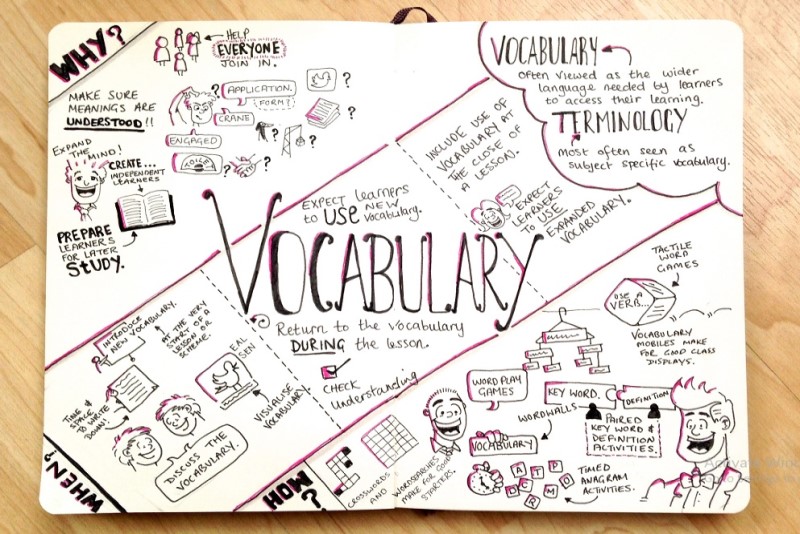 WHY?
HELP
EVERYONE
JOIN IN.
MAKE SURE
MEANINGS ARE
UNDERSTOOD!!
? APPLICATION. ?
FORM?
CRANE
?
?
ENGAGED
?
TOILET
?
EXPAND
THE MIND!
CREATE...
INDEPENDENT
LEARNERS
PREPARE
LEARNERS
FOR LATER
STUDY.
VOCABULARY
Often viewed as the wider
language needed by learners
to access their learning.
TERMINOLOGY
Most often seen as
subject specific vocabulary.
EXPECT learners
to USE NEW
vocabulary.
INCLUDE USE OF
VOCABULARY AT
THE CLOSE OF
A LESSON.
EXPECT
LEARNERS
TO USE
EXPANDED
VOCABULARY.
VOCABULARY
Return to the vocabulary
DURING the lesson.
CHECK
Understanding
INTRODUCE
NEW VOCABULARY.
AT THE VERY
START OF A
LESSON OR
SCHEME.
TIME &
SPACE
TO WRITE
DOWN!
EAL
SEN
VISUALISE
VOCABULARY
DISCUSS THE
VOCABULARY.
WHEN?
HOW?
CROSSWORDS
AND
WORDSEARCHES
MAKE FOR GOOD
STARTERS.
WORD PLAY
GAMES
WORDWALLS
VOCABULARY
KEY WORD.
DEFINITION
PAIRED
KEY WORD &
DEFINITION
ACTIVITIES.
TACTILE
WORD
GAMES
USE A
VERB...
VOCABULARY
MOBILES MAKE
FOR GOOD CLASS
DISPLAYS.
A T P
D C R M O
TIMED
ANAGRAM
ACTIVITIES.